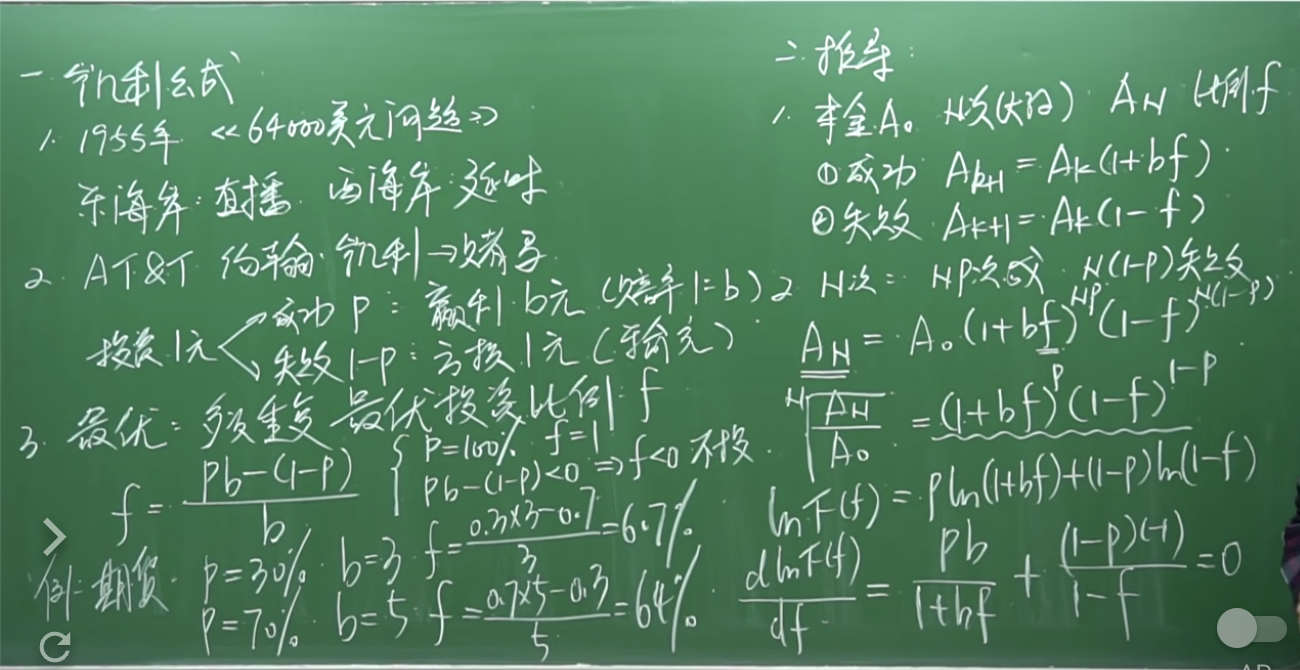 一、凯利公式
1. 1955年 《64000美元问题》
东海岸:直播 西海岸:延时
2. AT&T 约翰·凯利→赌马
投资1元 成功 p:赢利 b元 (赔率1:b)
失败 1-p:亏损1元 (输完)
3. 最优:多次重复 最优投资比例:f
f = (pb-(1-p))/b { p=100% f=1
pb-(1-p)<0 ⇒ f<0 不投
例:期货 p=30% b=3 f = (0.3×3-0.7)/3 = 6.7%
p=70% b=5 f = (0.7×5-0.3)/5 = 64%
二、推导:
1. 本金A₀ N次(大数) A_N 比例f
① 成功 A_{k+1} = A_k(1+bf)
② 失败 A_{k+1} = A_k(1-f)
2. N次: NP次成 N(1-P)失败
A_N = A₀(1+bf)^{NP}(1-f)^{N(1-P)}
ᴺ√(A_N/A₀) = (1+bf)^p(1-f)^{1-p}
lnF(f) = pln(1+bf)+(1-p)ln(1-f)
dlnF(f)/df = pb/(1+bf) + (1-p)(-1)/(1-f) = 0